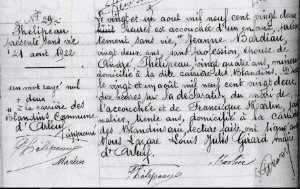 N° 29
Philipeau
présenté sans vie
21 août 1922
un mot rayé nul
deux
à la carrière des
Blandins, commune
d'Arleuf
approuvé
Philipeau
Martin
Le vingt et un août mil neuf cent vingt deux
huit heures est accouchée d'un enfant
sans vie, Jeanne Bardiau,
vingt deux ans, sans profession, épouse de
André Philipeau, vingt quatre ans, mineur
domiciliés à la dite carrière des Blandins. Le
vingt et un août mil neuf cent vingt deux
dix heures, sur la déclaration du mari de
l'accouchée et de Francisque Martin,
trente ans, domicilié à la carrière
des Blandins qui lecture faite, ont signé avec
Nous Lazare Louis Jules Girard maire
d'Arleuf
Philipeau
Martin